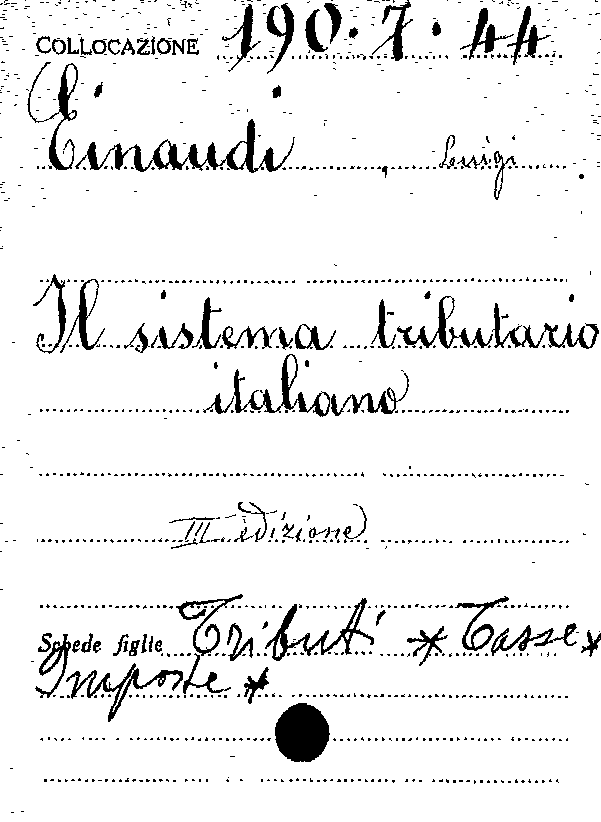 COLLOCAZIONE 190.7.44
Einaudi, Luigi
Il sistema tributario
italiano
III edizione
Schede figlie Tributi * Tasse *
Imposte *